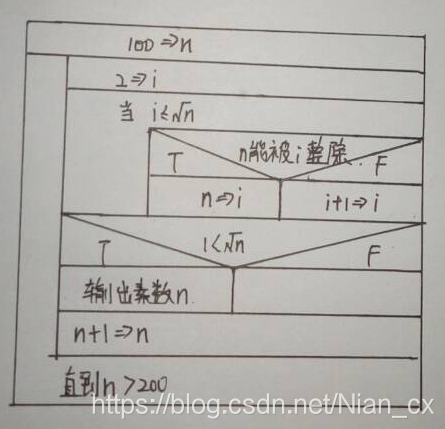 100⇒n
2⇒i
当 i≤√n
n能被i整除
T F
n⇒i i+1⇒i
i<√n
T F
输出素数n
n+1⇒n
直到n>200
https://blog.csdn.net/Nian_cx